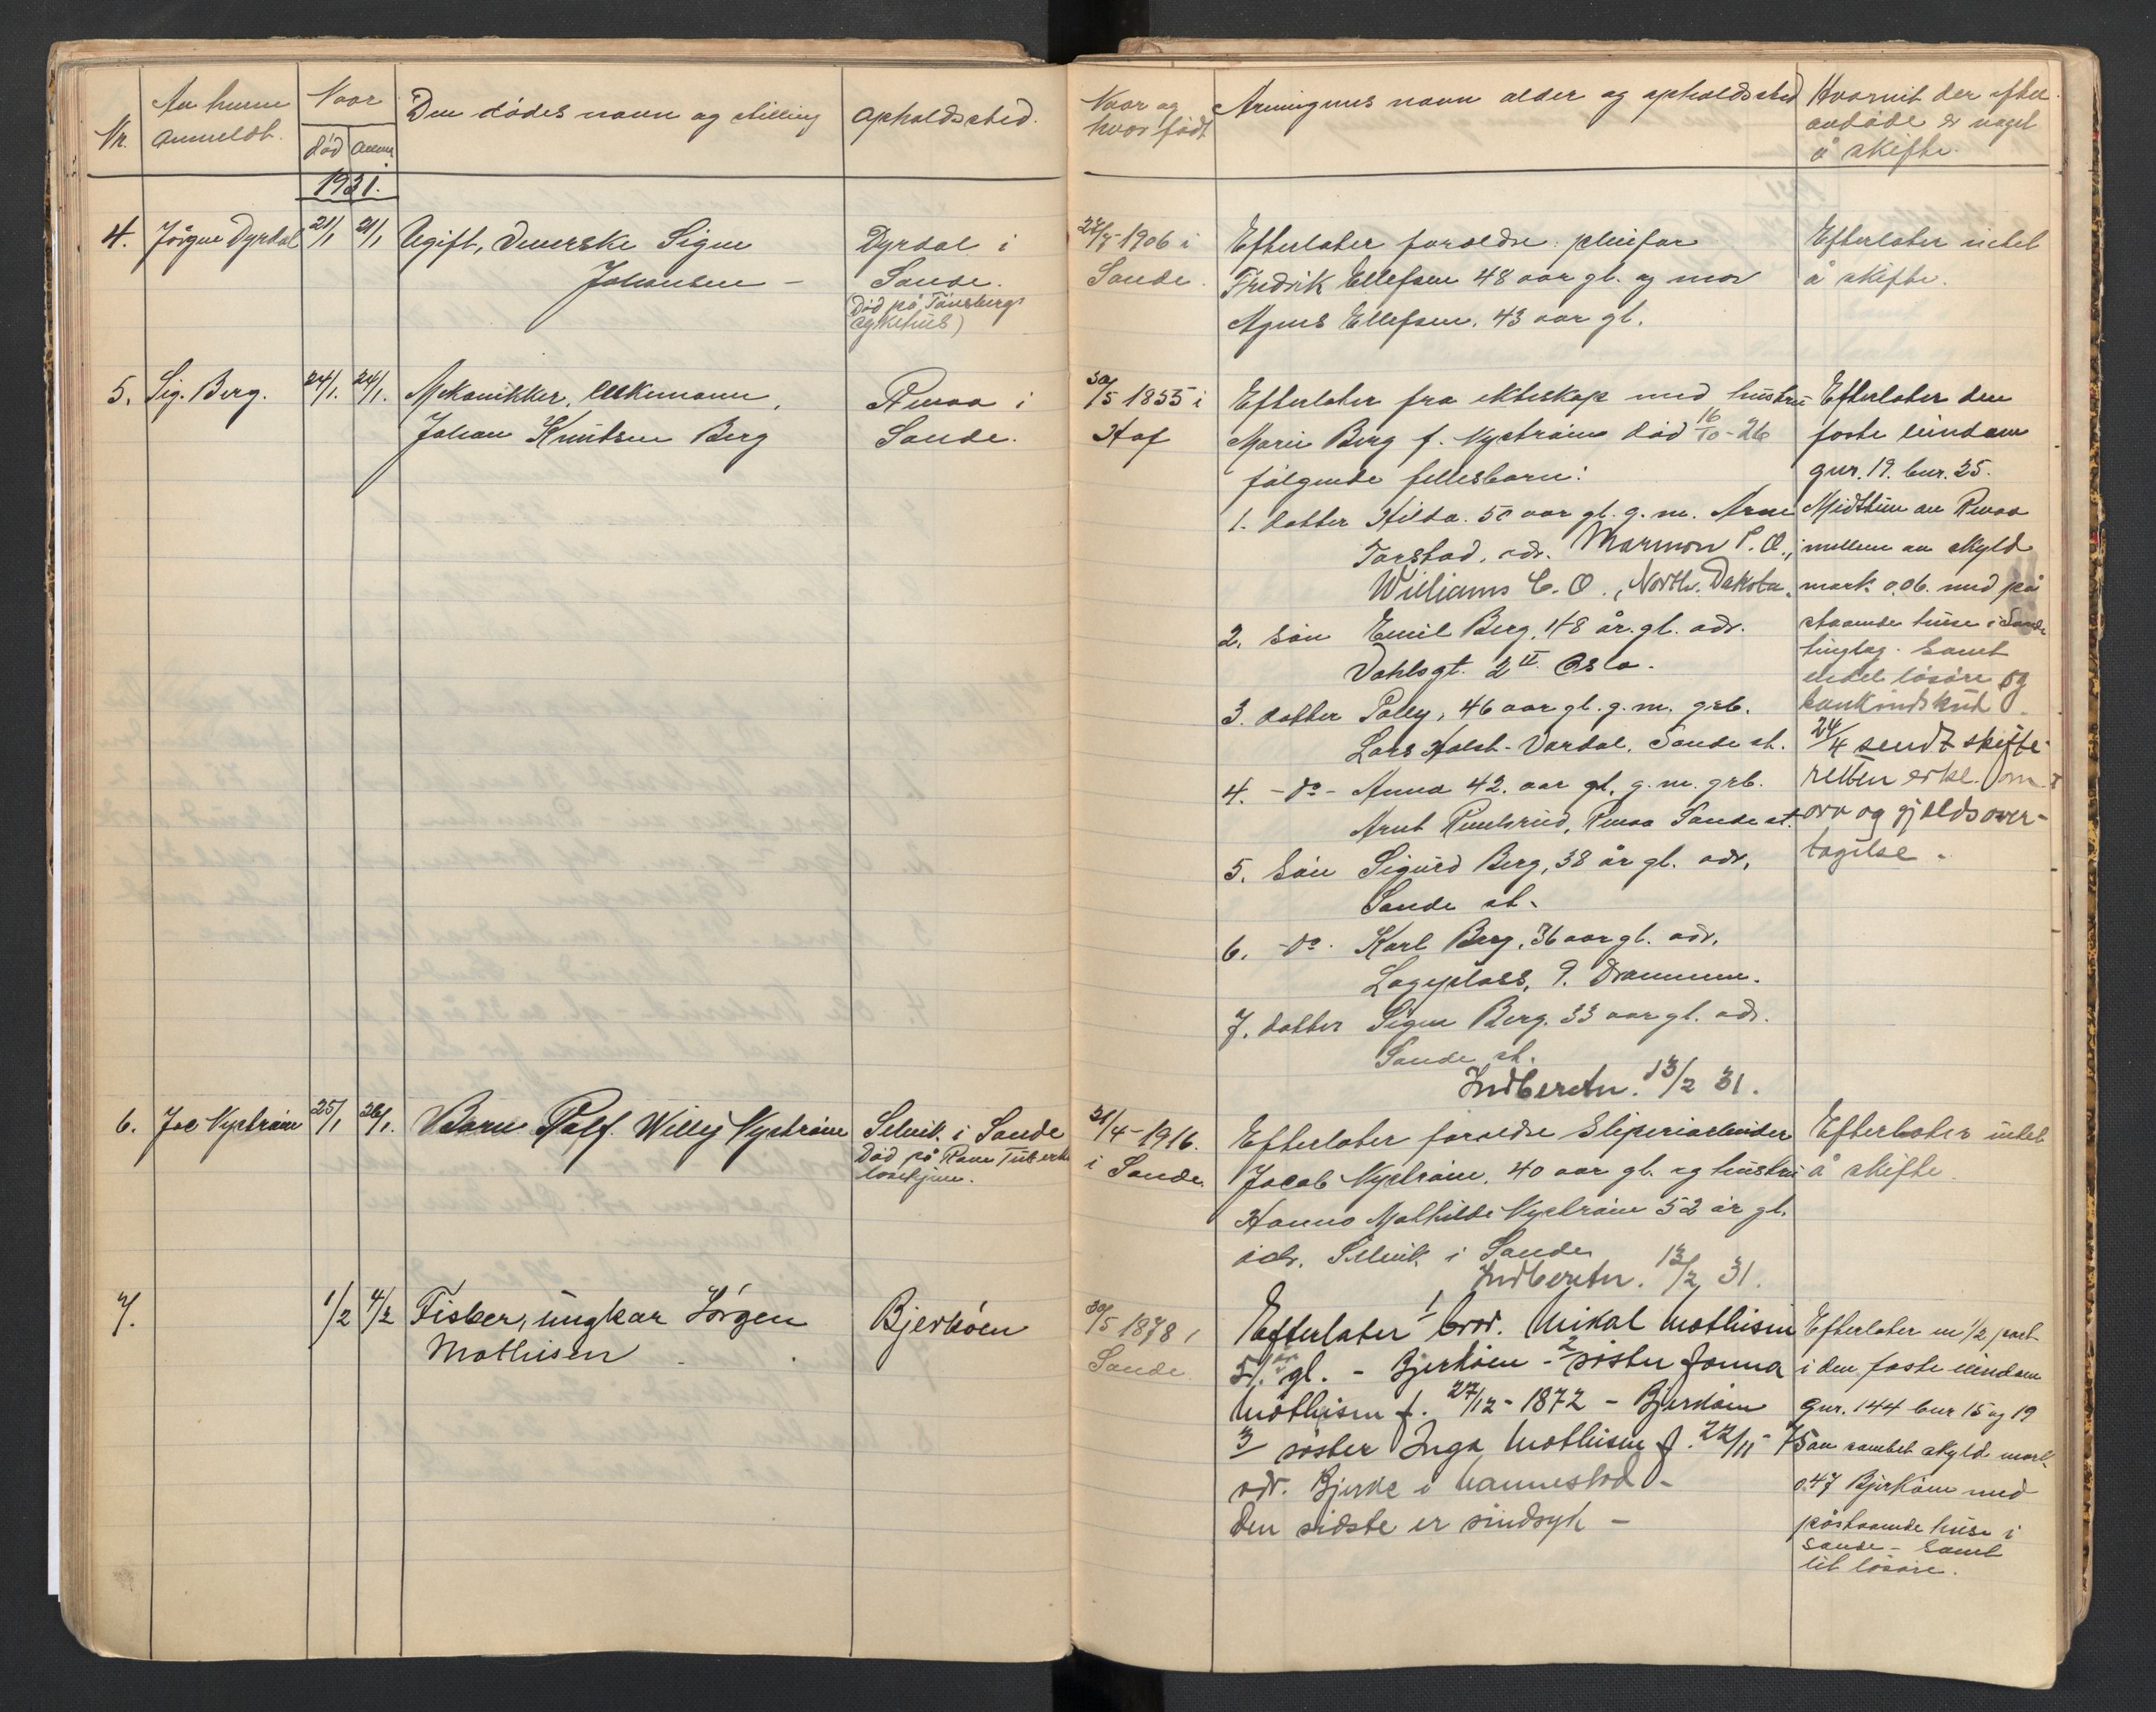 Nr.
Av hvem anmeldt.
Naar
død
anm.
Den dødes navn og stilling
Opholdssted.
Naar og hvor født
Arvingenes navn alder og opholdssted
Hvorvidt der efter avdøde er noget å skifte.
1931.
4. Jørgen Dyrdal 21/1 21/1 Ugift, Signe
Johansen -
Dyrdal i
Sande.
Død på Tønsbergs
sykehus)
1906 i
Sande.
Efterlater foreldre: pleiefar
Fredrik Ellefsen 48 aar gl. og mor
Agnes Ellefsen, 43 aar gl.
Efterlater intet
å skifte.
5. Sig. Berg. 24/1. 24/1. Mekanikker, enkemann,
Johan Knutsen Berg
Revaa i
Sande.
30/5 1855 i
Hof
Efterlater fra ekteskap med hustru
Marie Berg f. Nystrøm død 16/10-26
følgende fellesbarn:
1. datter Hilda. 50 aar gl. g. m. Arne
Torstad, adr. Marmon P.O.,
Williams C.O., North. Dakota.
2. søn Emil Berg, 48 år. gl. adr.
Dahlsgt. 2 II Oslo.
3. datter Polly, 46 aar gl. g. m. grb.
Lars Holst-Dardal, Sande st.
4. -do- Anna 42. aar gl, g. m. grb.
Arnt Revaa Sande st.
5. søn Sigurd Berg, 38 år gl. adr,
Sande st.
6. -do- Karl Berg, 36 aar gl. adr,
Drammen.
7. datter Signe Berg. 33 aar gl. adr.
Sande st.
Indberetn. 13/2 31.
Efterlater den
faste eiendom
gnr. 19. bnr. 25.
Midttun av Revaa
av skyld
mark 0,06. med på
staaende huse i Sande
tinglag. samt
endel løsøre og
bankindskud.
24/4 sendt skifte-
retten erkl. om
arv og gjeldsover-
tagelse.
6. Jac Nystrøm 25/1 26/1. Barn Rolf Willy Nystrøm
Selvik i Sande
Død på Tuberku
losehjem.
21/4-1916.
i Sande.
Efterlater foreldre Sliperiarbeider
Jacob Nystrøm, 40 aar gl. og hustru
Hanna Mathilde Nystrøm 52 år gl.
adr. Selvik i Sande
Indberetn. 13/2 31.
Efterlater intet
å skifte.
7. 1/2 4/2 Fisker, ungkar Jørgen
Mathisen
Bjerkøen
30/5 1878 i
Sande.
Efterlater 1/ bror. Mikal Mathisen
51 år gl. - Bjerkøen - 2 søster Jonna
Mathisen f. 27/12-1872 - Bjerkøen
3/ søster Inga Mathisen f. 22/11-75
adr. Bjerke i Vannestad -
den sidste er sindsyk -
Efterlater en 1/2 part
i den faste eiendom
gnr. 144 bnr 15 og 19
av samlet skyld mark
0.47 Bjerkøen med
påstaaende huse i
Sande - samt
litt løsøre.